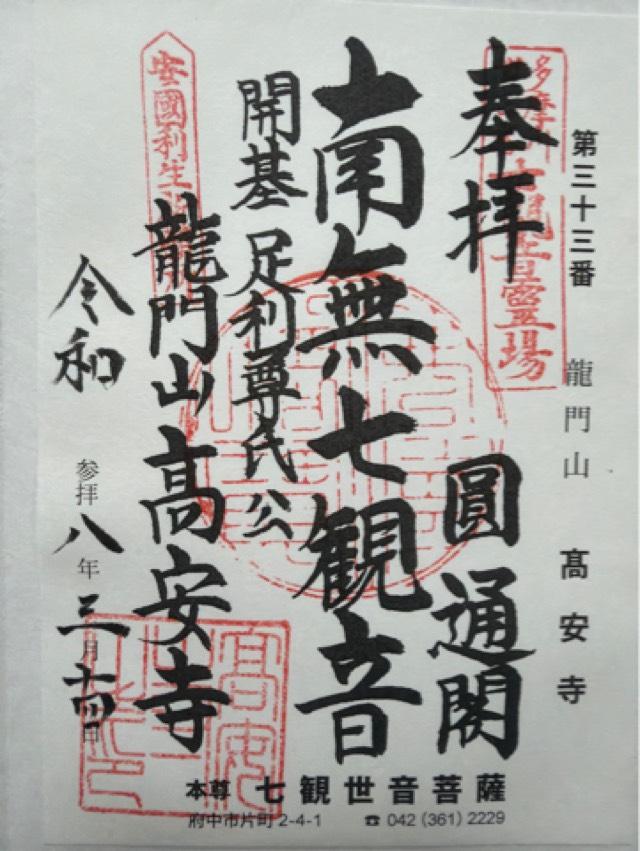 第三十三番 龍門山 髙安寺
多摩川三十三観音霊場
奉拝 圓通閣
南無七観音
開基 足利尊氏公
龍門山 高安寺
安國利生
令和
参拝 八年 三月 十四日
高安
本尊 七観世音菩薩
府中市片町 2-4-1 ☎ 042 (361) 2229